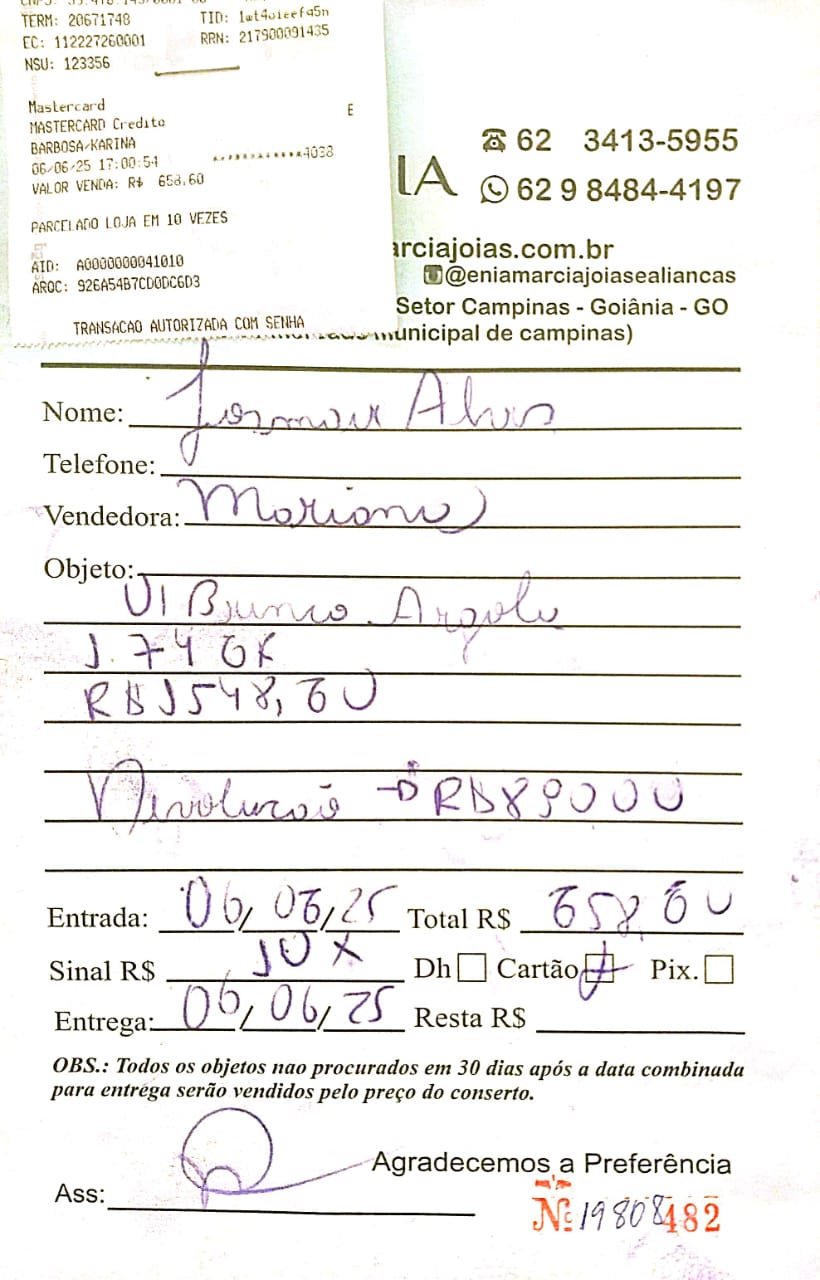 TERM: 20671748 TID: 1wt4oieefq5n
EC: 112227260001 RRN: 217900091435
NSU: 123356
Mastercard
E
MASTERCARD Credito
BARBOSA/KARINA
06/06/25 17:00:54 ************4038
VALOR VENDA: R$ 658,60
PARCELADO LOJA EM 10 VEZES
AID: A0000000041010
AROC: 926A54B7CD0DC6D3
TRANSACAO AUTORIZADA COM SENHA
62 3413-5955
IA
62 9 8484-4197
arciajoias.com.br
@eniamarciajoiasealiancas
Setor Campinas - Goiânia - GO
municipal de campinas)
Nome: Alves
Telefone:
Vendedora: Mariana
Objeto:
01 Brinco Argola
1.74 GR
R$ 1548,60
Devolução → R$ 890 00
Entrada: 06/06/25 Total R$ 658,60
Sinal R$ 10 X Dh Cartão Pix.
Entrega: 06/06/25 Resta R$
OBS.: Todos os objetos nao procurados em 30 dias após a data combinada
para entrega serão vendidos pelo preço do conserto.
Agradecemos a Preferência
Ass:
Nº 19808 482